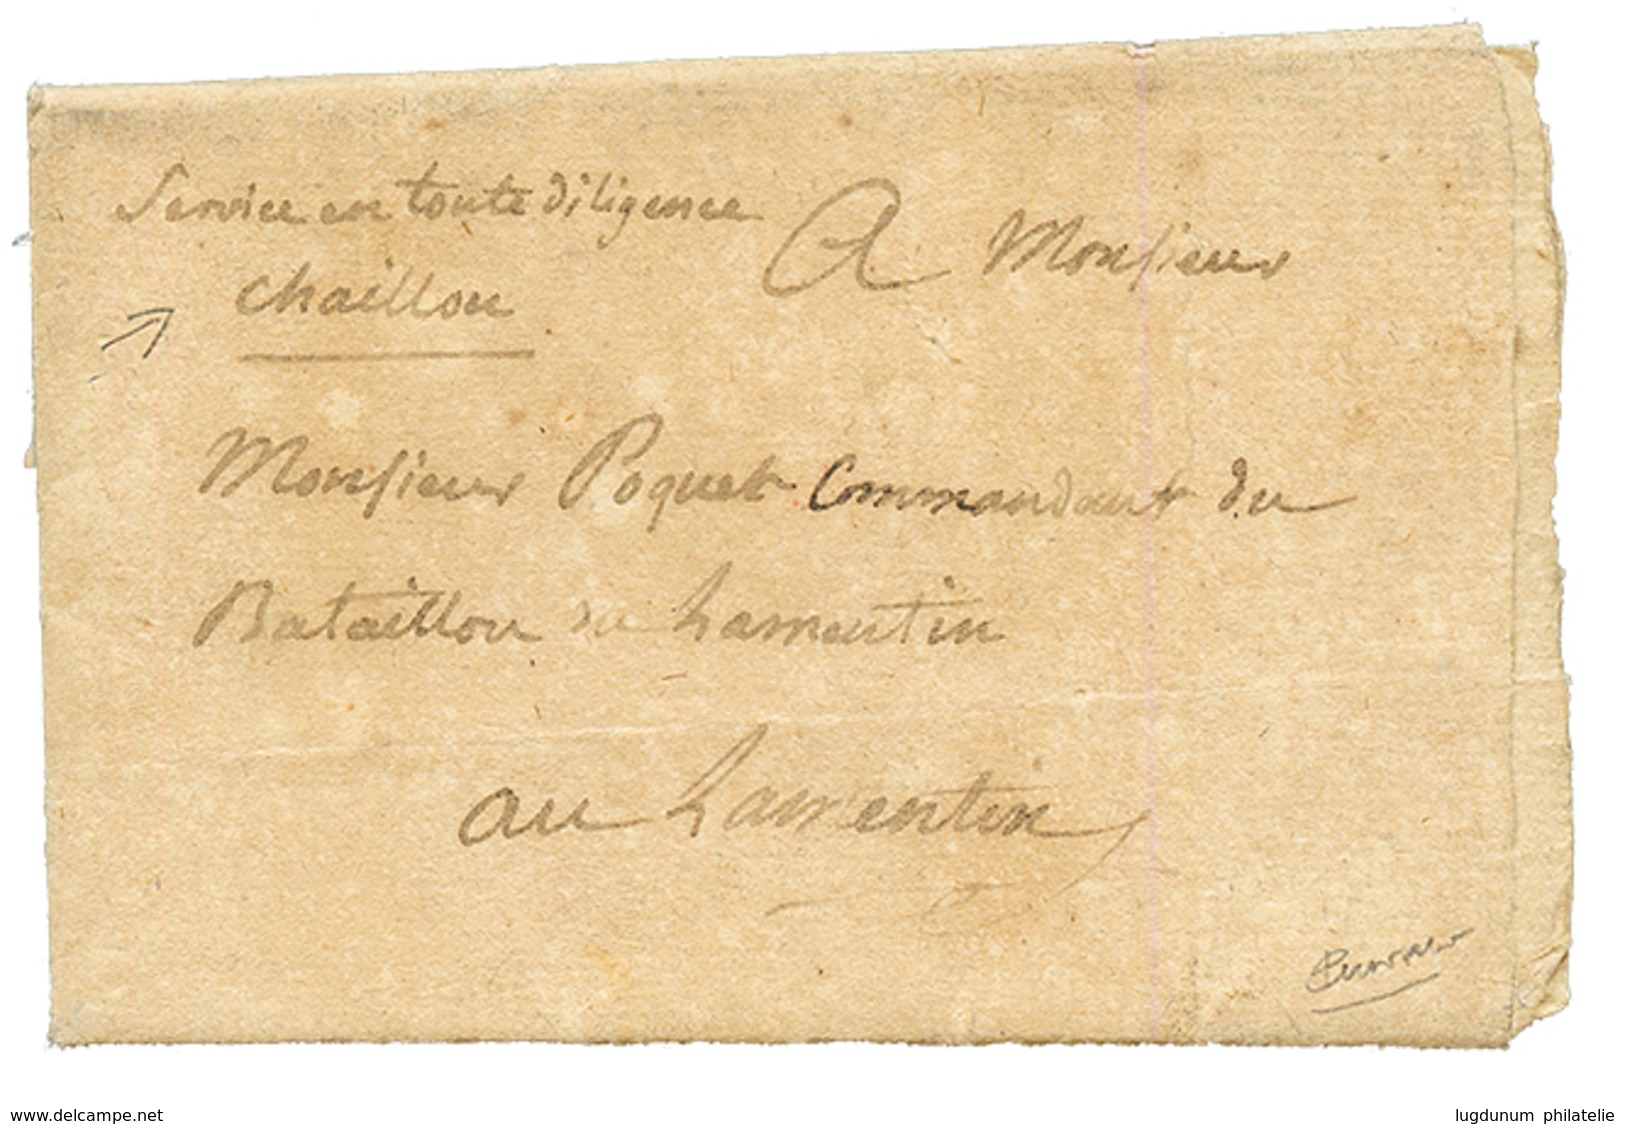 Service en toute diligence
chaillou
A Monsieur
Monsieur Poquet Commandant du
Bataillon du Lamentin
au Lamentin
www.delcampe.net
lugdunum philatelie